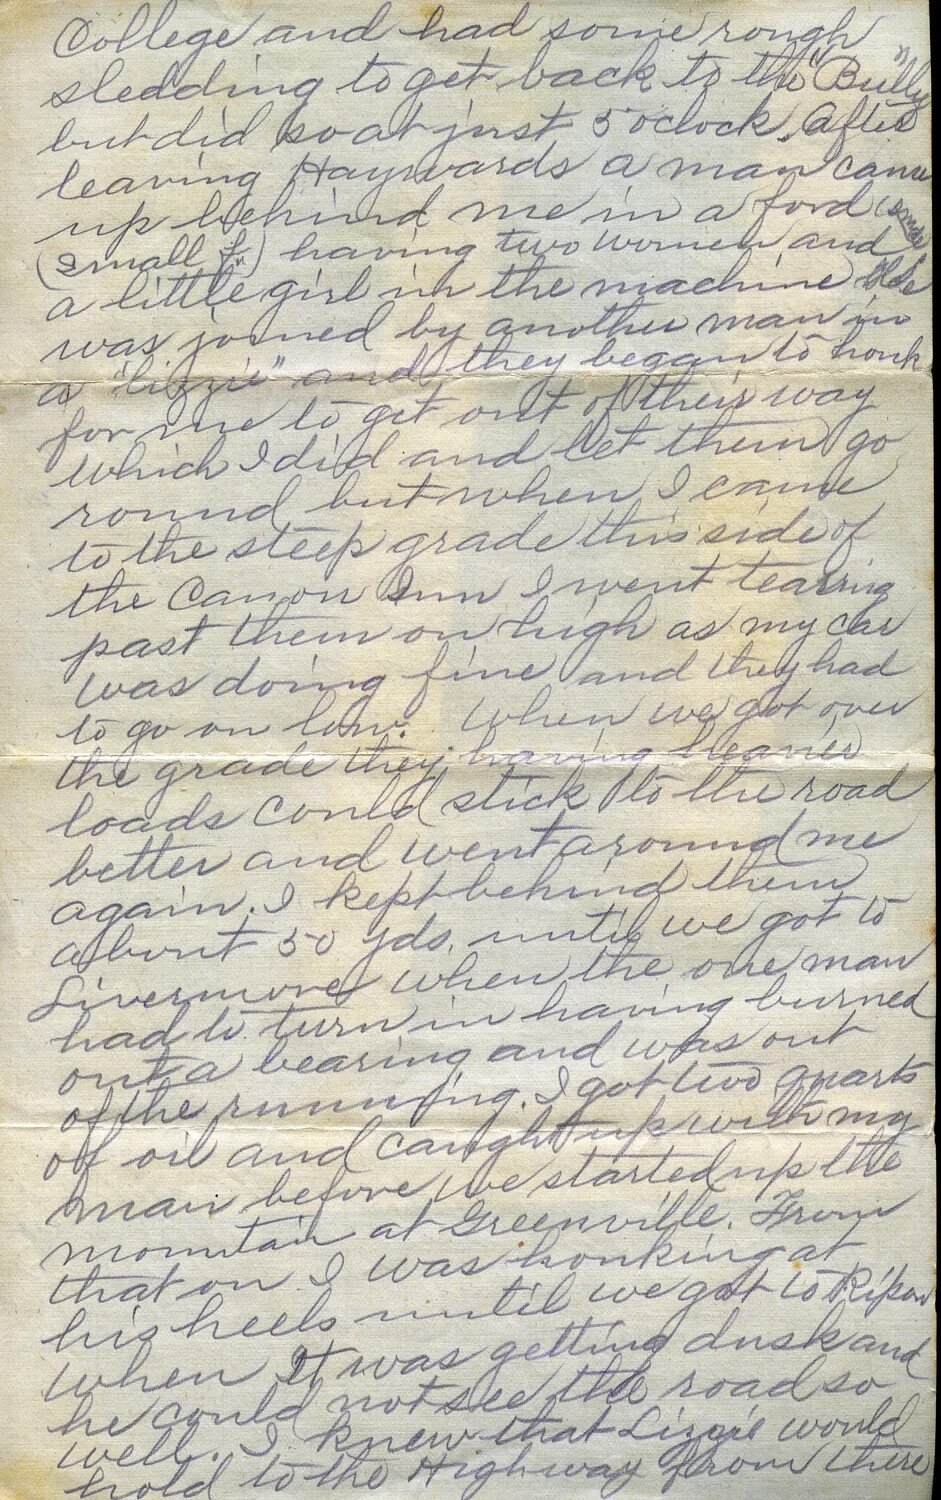 College and had some rough
sledding to get back to the "Bully"
but did so at just 5 oclock. After
leaving Haywards a man came
up behind me in a ford
(small f) having two women and
a little girl in the machine He
was joined by another man in
a "lizzie" and they began to honk
for me to get out of their way
which I did and let them go
round but when I came
to the steep grade this side of
the Canon Inn I went tearing
past them on high as my car
was doing fine and they had
to go on low. When we got over
the grade they having heavier
loads could stick to the road
better and went around me
again. I kept behind them
about 50 yds. until we got to
Livermore when the one man
had to turn in having burned
out a bearing and was out
of the running. I got two quarts
of oil and caught up with my
man before we started up the
mountain at Greenville. From
that on I was honking at
his heels until we got to Ripon
when It was getting dusk and
he could not see the road so
well. I knew that Lizzie would
hold to the Highway from there